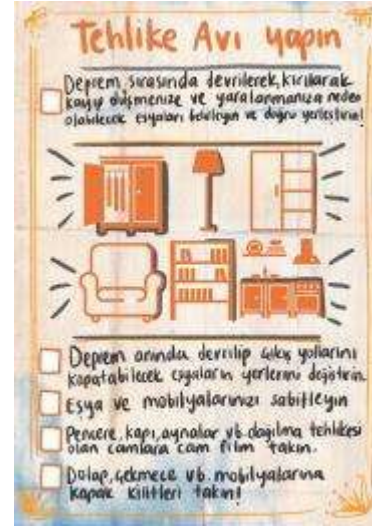 Tehlike Avı yapın
Deprem sırasında devrilerek, kırılarak
kayıp düşmenize ve yaralanmanıza neden
olabilecek eşyaları belirleyin ve doğru yerleştirin!
Deprem anında devrilip çıkış yollarını
kapatabilecek eşyaların yerlerini değiştirin.
Eşya ve mobilyalarınızı sabitleyin
Pencere, kapı, aynalar vb. dağılma tehlikesi
olan camlara cam film takın.
Dolap, çekmece vb. mobilyalarına
kapak kilitleri takın!